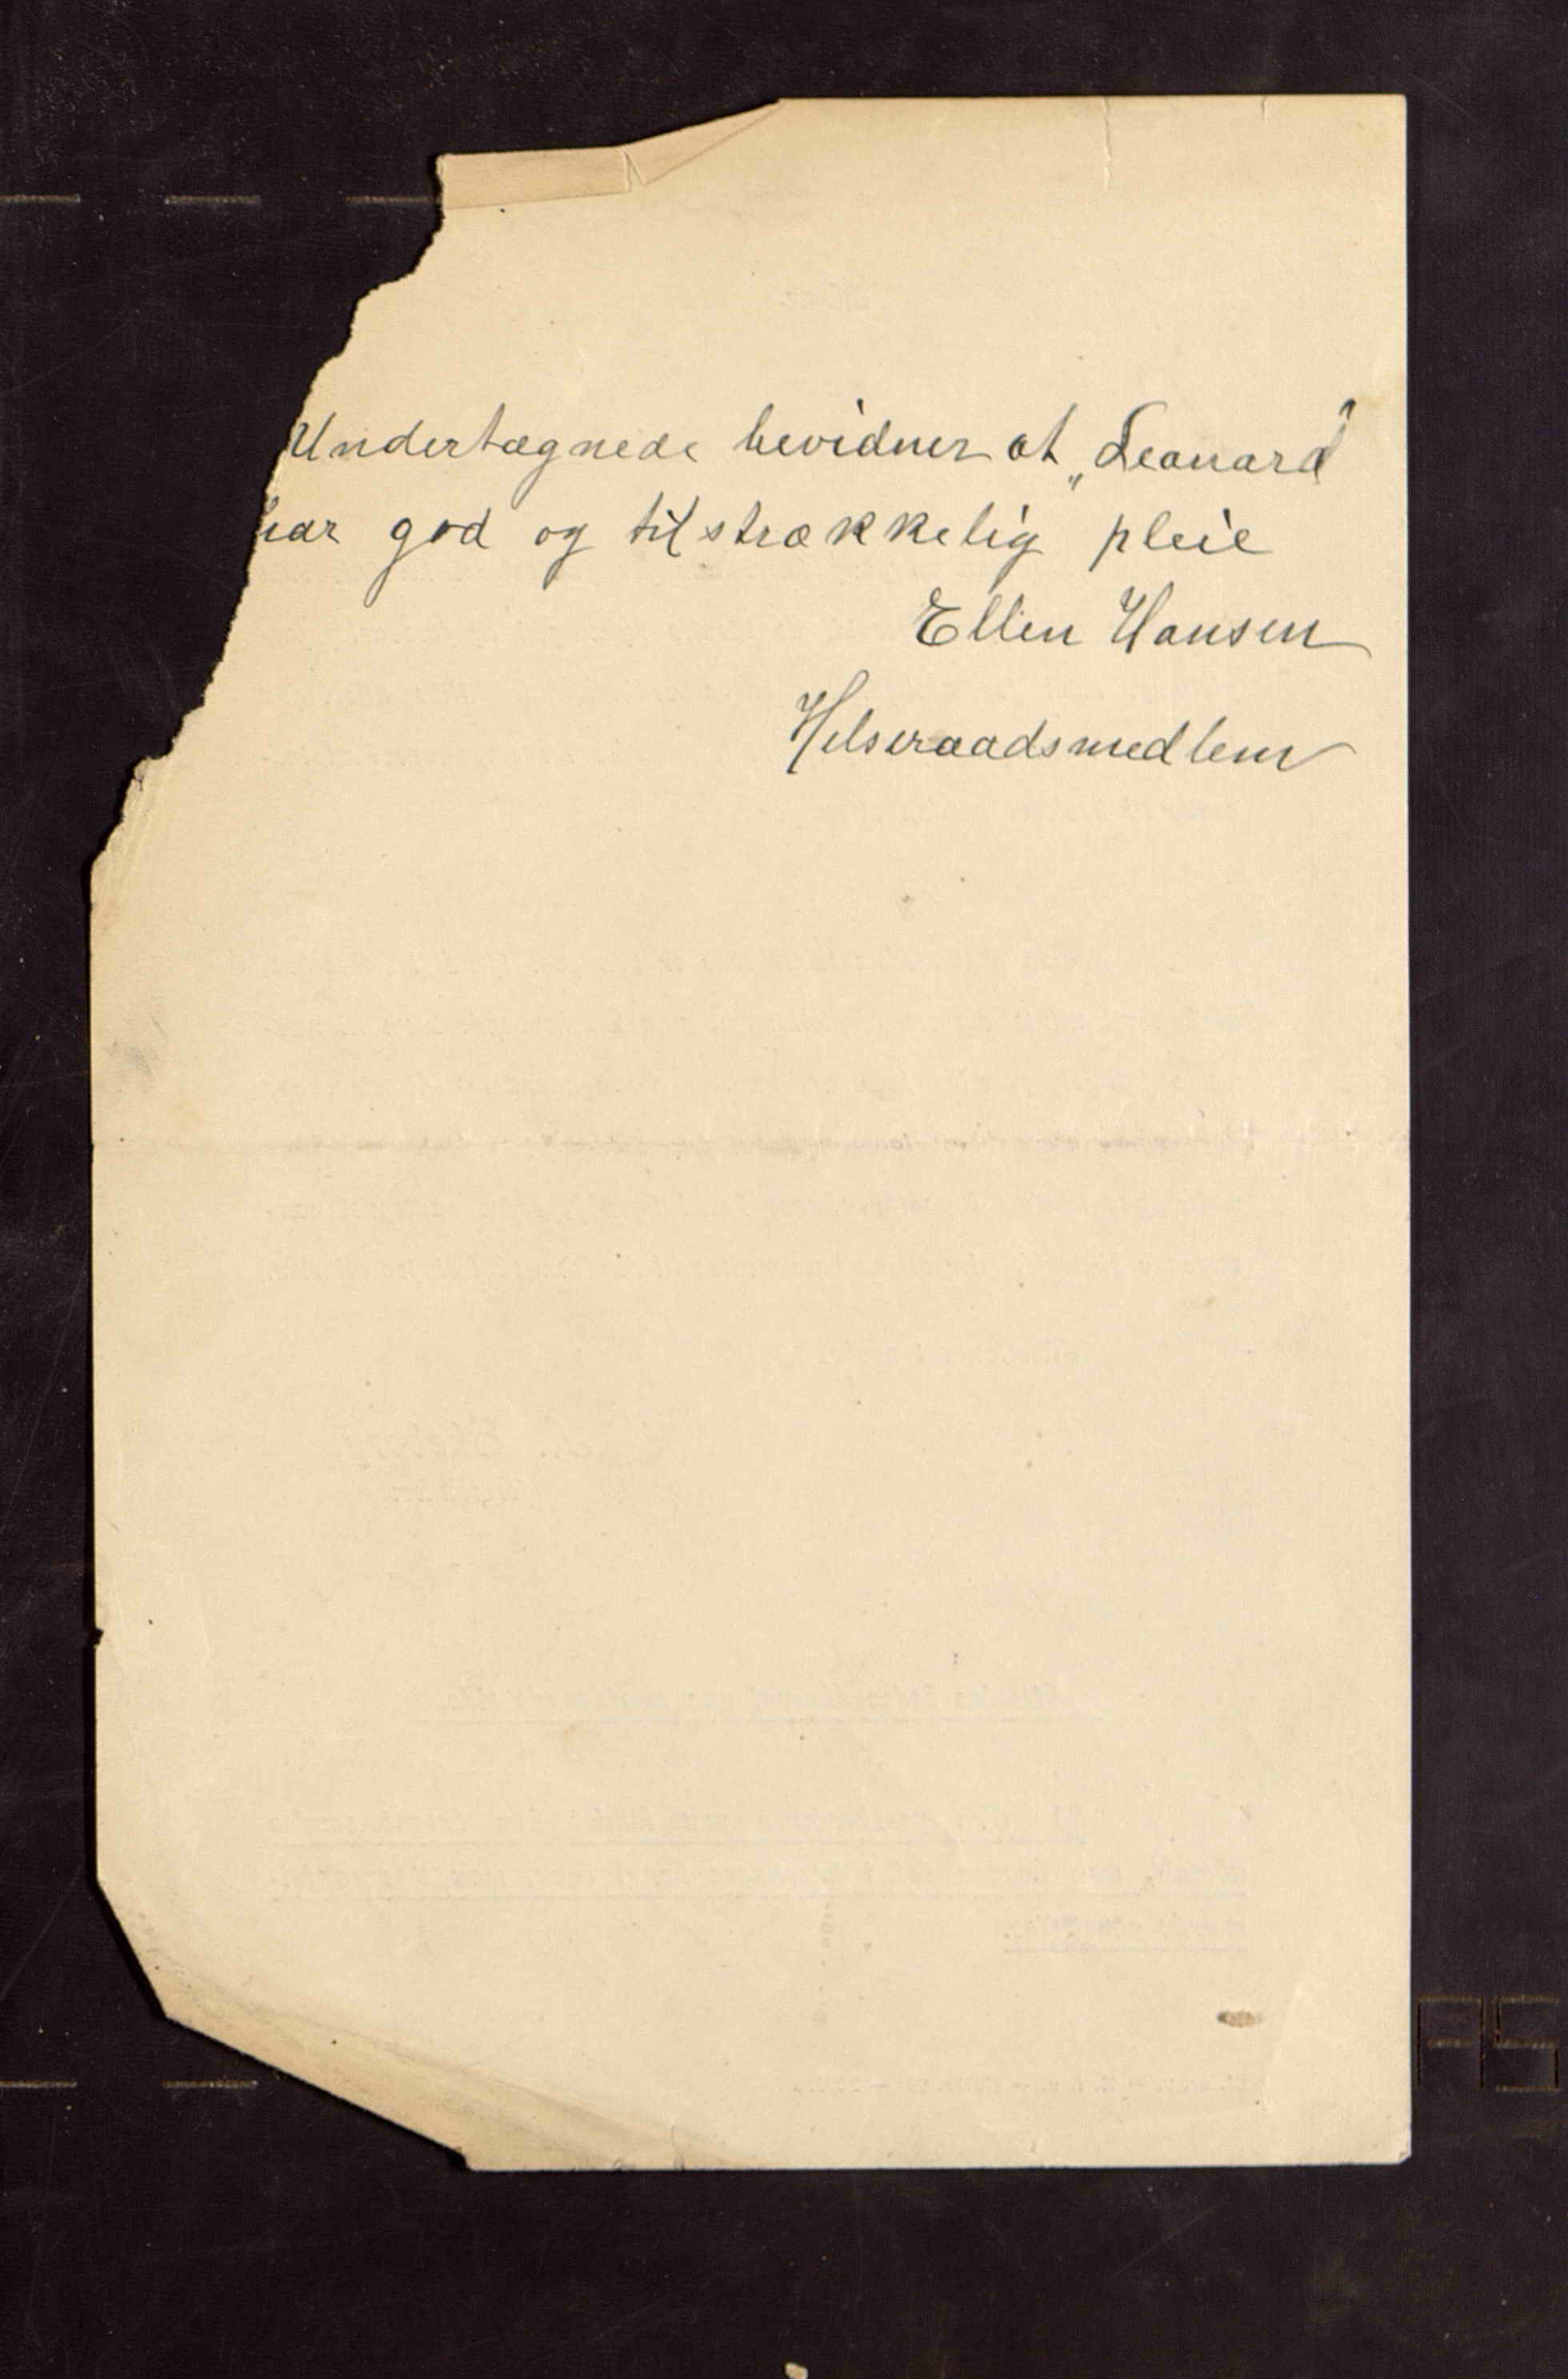 Undertægnede bevidner at „Leonard"
har god og tilstrækkelig pleie
Ellen Hansen
Helseraadsmedlem